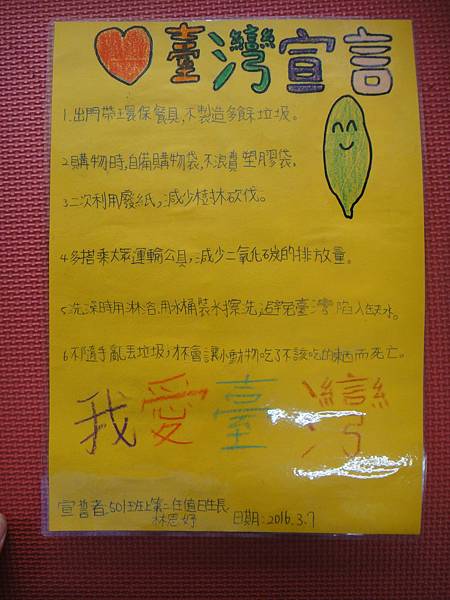 臺灣宣言
1.出門帶環保餐具,不製造多餘垃圾。
2.購物時,自備購物袋,不浪費塑膠袋。
3.二次利用廢紙,減少樹林砍伐。
4.多搭乘大眾運輸公具,減少二氧化碳的排放量。
5.洗澡時用淋浴,用水桶裝水擦洗,避免臺灣陷入缺水。
6.不隨手亂丟垃圾,才不會讓小動物吃了不該吃的東西而死亡。
我愛臺灣
宣誓者:501班上第二任值日生長
林恩妤 日期:2016.3.7